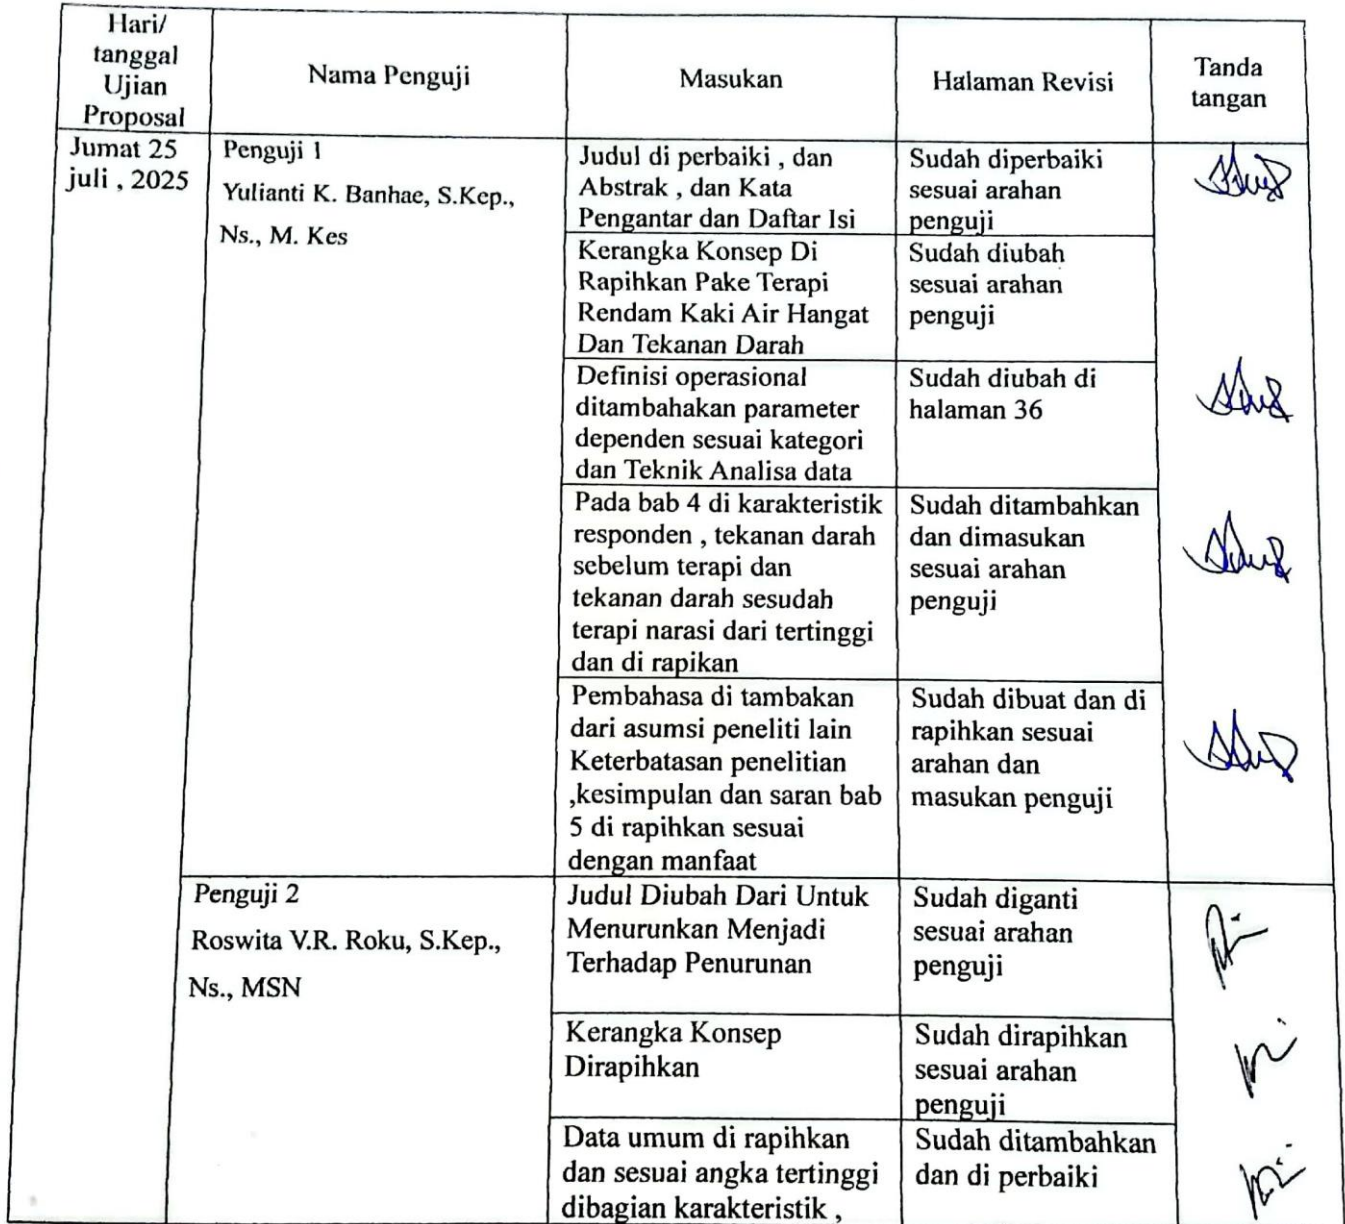 Hari/
tanggal
Ujian
Proposal
Nama Penguji
Masukan
Halaman Revisi
Tanda
tangan
Jumat 25
juli , 2025
Penguji 1
Yulianti K. Banhae, S.Kep.,
Ns., M. Kes
Judul di perbaiki , dan
Abstrak , dan Kata
Pengantar dan Daftar Isi
Sudah diperbaiki
sesuai arahan
penguji
Kerangka Konsep Di
Rapihkan Pake Terapi
Rendam Kaki Air Hangat
Dan Tekanan Darah
Sudah diubah
sesuai arahan
penguji
Definisi operasional
ditambahakan parameter
dependen sesuai kategori
dan Teknik Analisa data
Sudah diubah di
halaman 36
Pada bab 4 di karakteristik
responden , tekanan darah
sebelum terapi dan
tekanan darah sesudah
terapi narasi dari tertinggi
dan di rapikan
Sudah ditambahkan
dan dimasukan
sesuai arahan
penguji
Pembahasa di tambakan
dari asumsi peneliti lain
Keterbatasan penelitian
,kesimpulan dan saran bab
5 di rapihkan sesuai
dengan manfaat
Sudah dibuat dan di
rapihkan sesuai
arahan dan
masukan penguji
Penguji 2
Roswita V.R. Roku, S.Kep.,
Ns., MSN
Judul Diubah Dari Untuk
Menurunkan Menjadi
Terhadap Penurunan
Sudah diganti
sesuai arahan
penguji
Kerangka Konsep
Dirapihkan
Sudah dirapihkan
sesuai arahan
penguji
Data umum di rapihkan
dan sesuai angka tertinggi
dibagian karakteristik ,
Sudah ditambahkan
dan di perbaiki